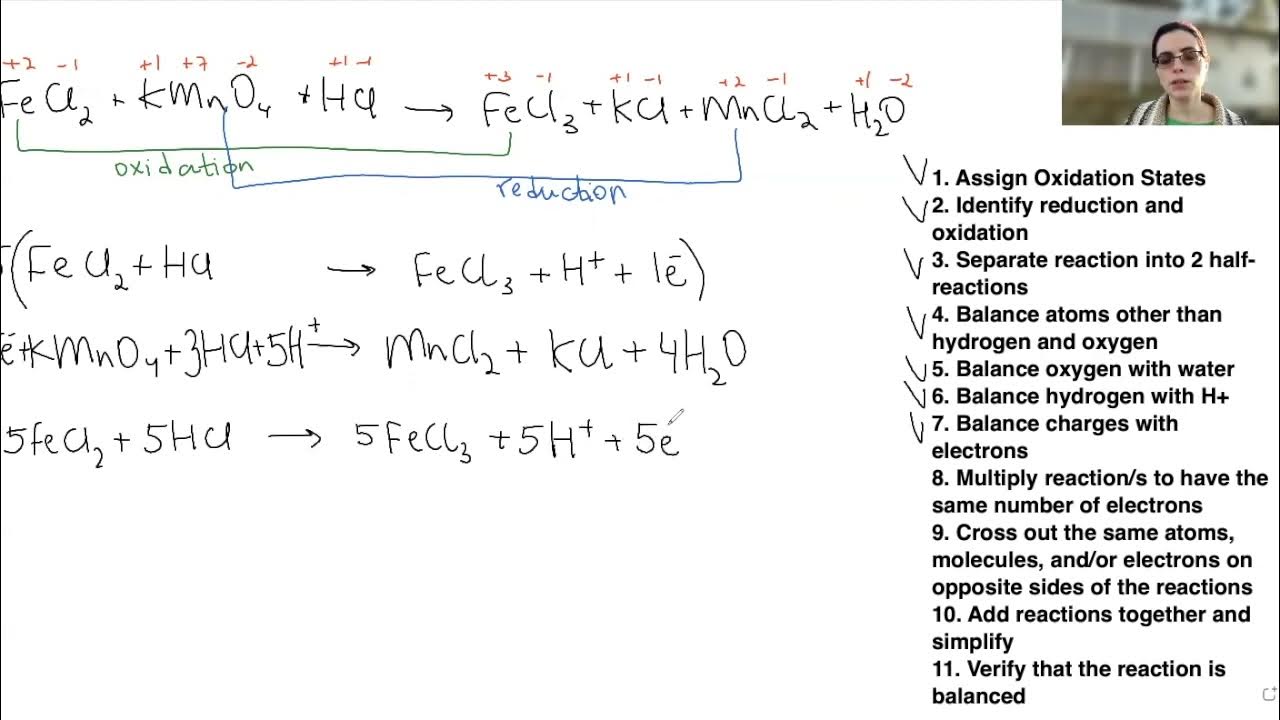 +2 -1 +1 +7 -2 +1 -1 +3 -1 +1 -1 +2 -1 +1 -2
FeCl₂ + KMnO₄ + HCl → FeCl₃ + KCl + MnCl₂ + H₂O
oxidation
reduction
(FeCl₂ + HCl → FeCl₃ + H⁺ + 1e⁻)
e⁻ + KMnO₄ + 3HCl + 5H⁺ → MnCl₂ + KCl + 4H₂O
5FeCl₂ + 5HCl → 5FeCl₃ + 5H⁺ + 5e⁻
1. Assign Oxidation States
2. Identify reduction and
oxidation
3. Separate reaction into 2 half-
reactions
4. Balance atoms other than
hydrogen and oxygen
5. Balance oxygen with water
6. Balance hydrogen with H+
7. Balance charges with
electrons
8. Multiply reaction/s to have the
same number of electrons
9. Cross out the same atoms,
molecules, and/or electrons on
opposite sides of the reactions
10. Add reactions together and
simplify
11. Verify that the reaction is
balanced